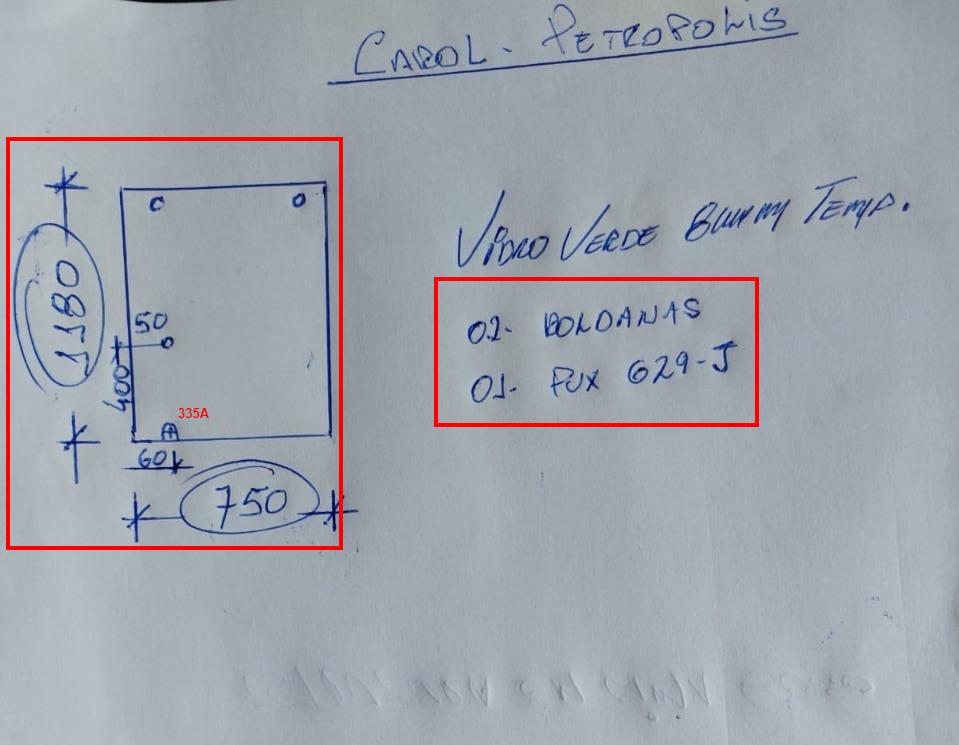 CAROL - PETROPOLIS
VIDRO VERDE 8mm TEMP.
02- ROLDANAS
01- PUX 629-J
1180
50
400
335A
60
750